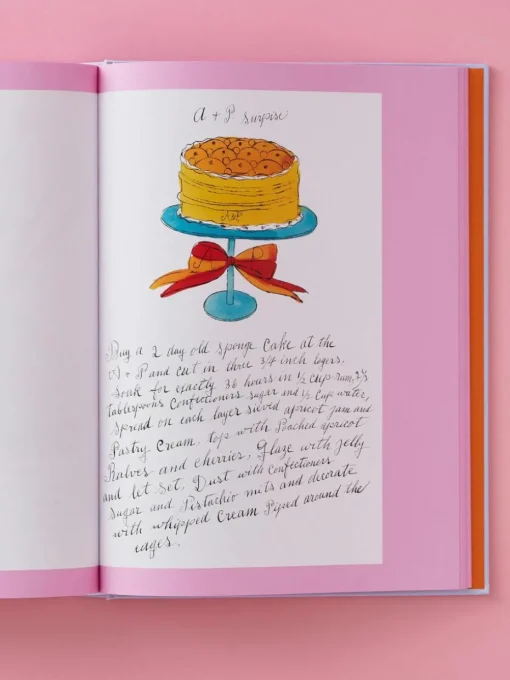 A + P Surpise
A&P
Buy a 2 day old sponge cake at the
A + P and cut in three 3/4 inch layers,
Soak for exactly 36 hours in 1/2 cup rum, 2 1/2
tablespoons Confectioners sugar and 1/2 cup water,
Spread on each layer sieved apricot jam and
Pastry Cream. top with Poached apricot
Halves and cherries, Glaze with Jelly
and let set. Dust with Confectioners
Sugar and Pistachio nuts and decorate
with whipped Cream Piped around the
edges.